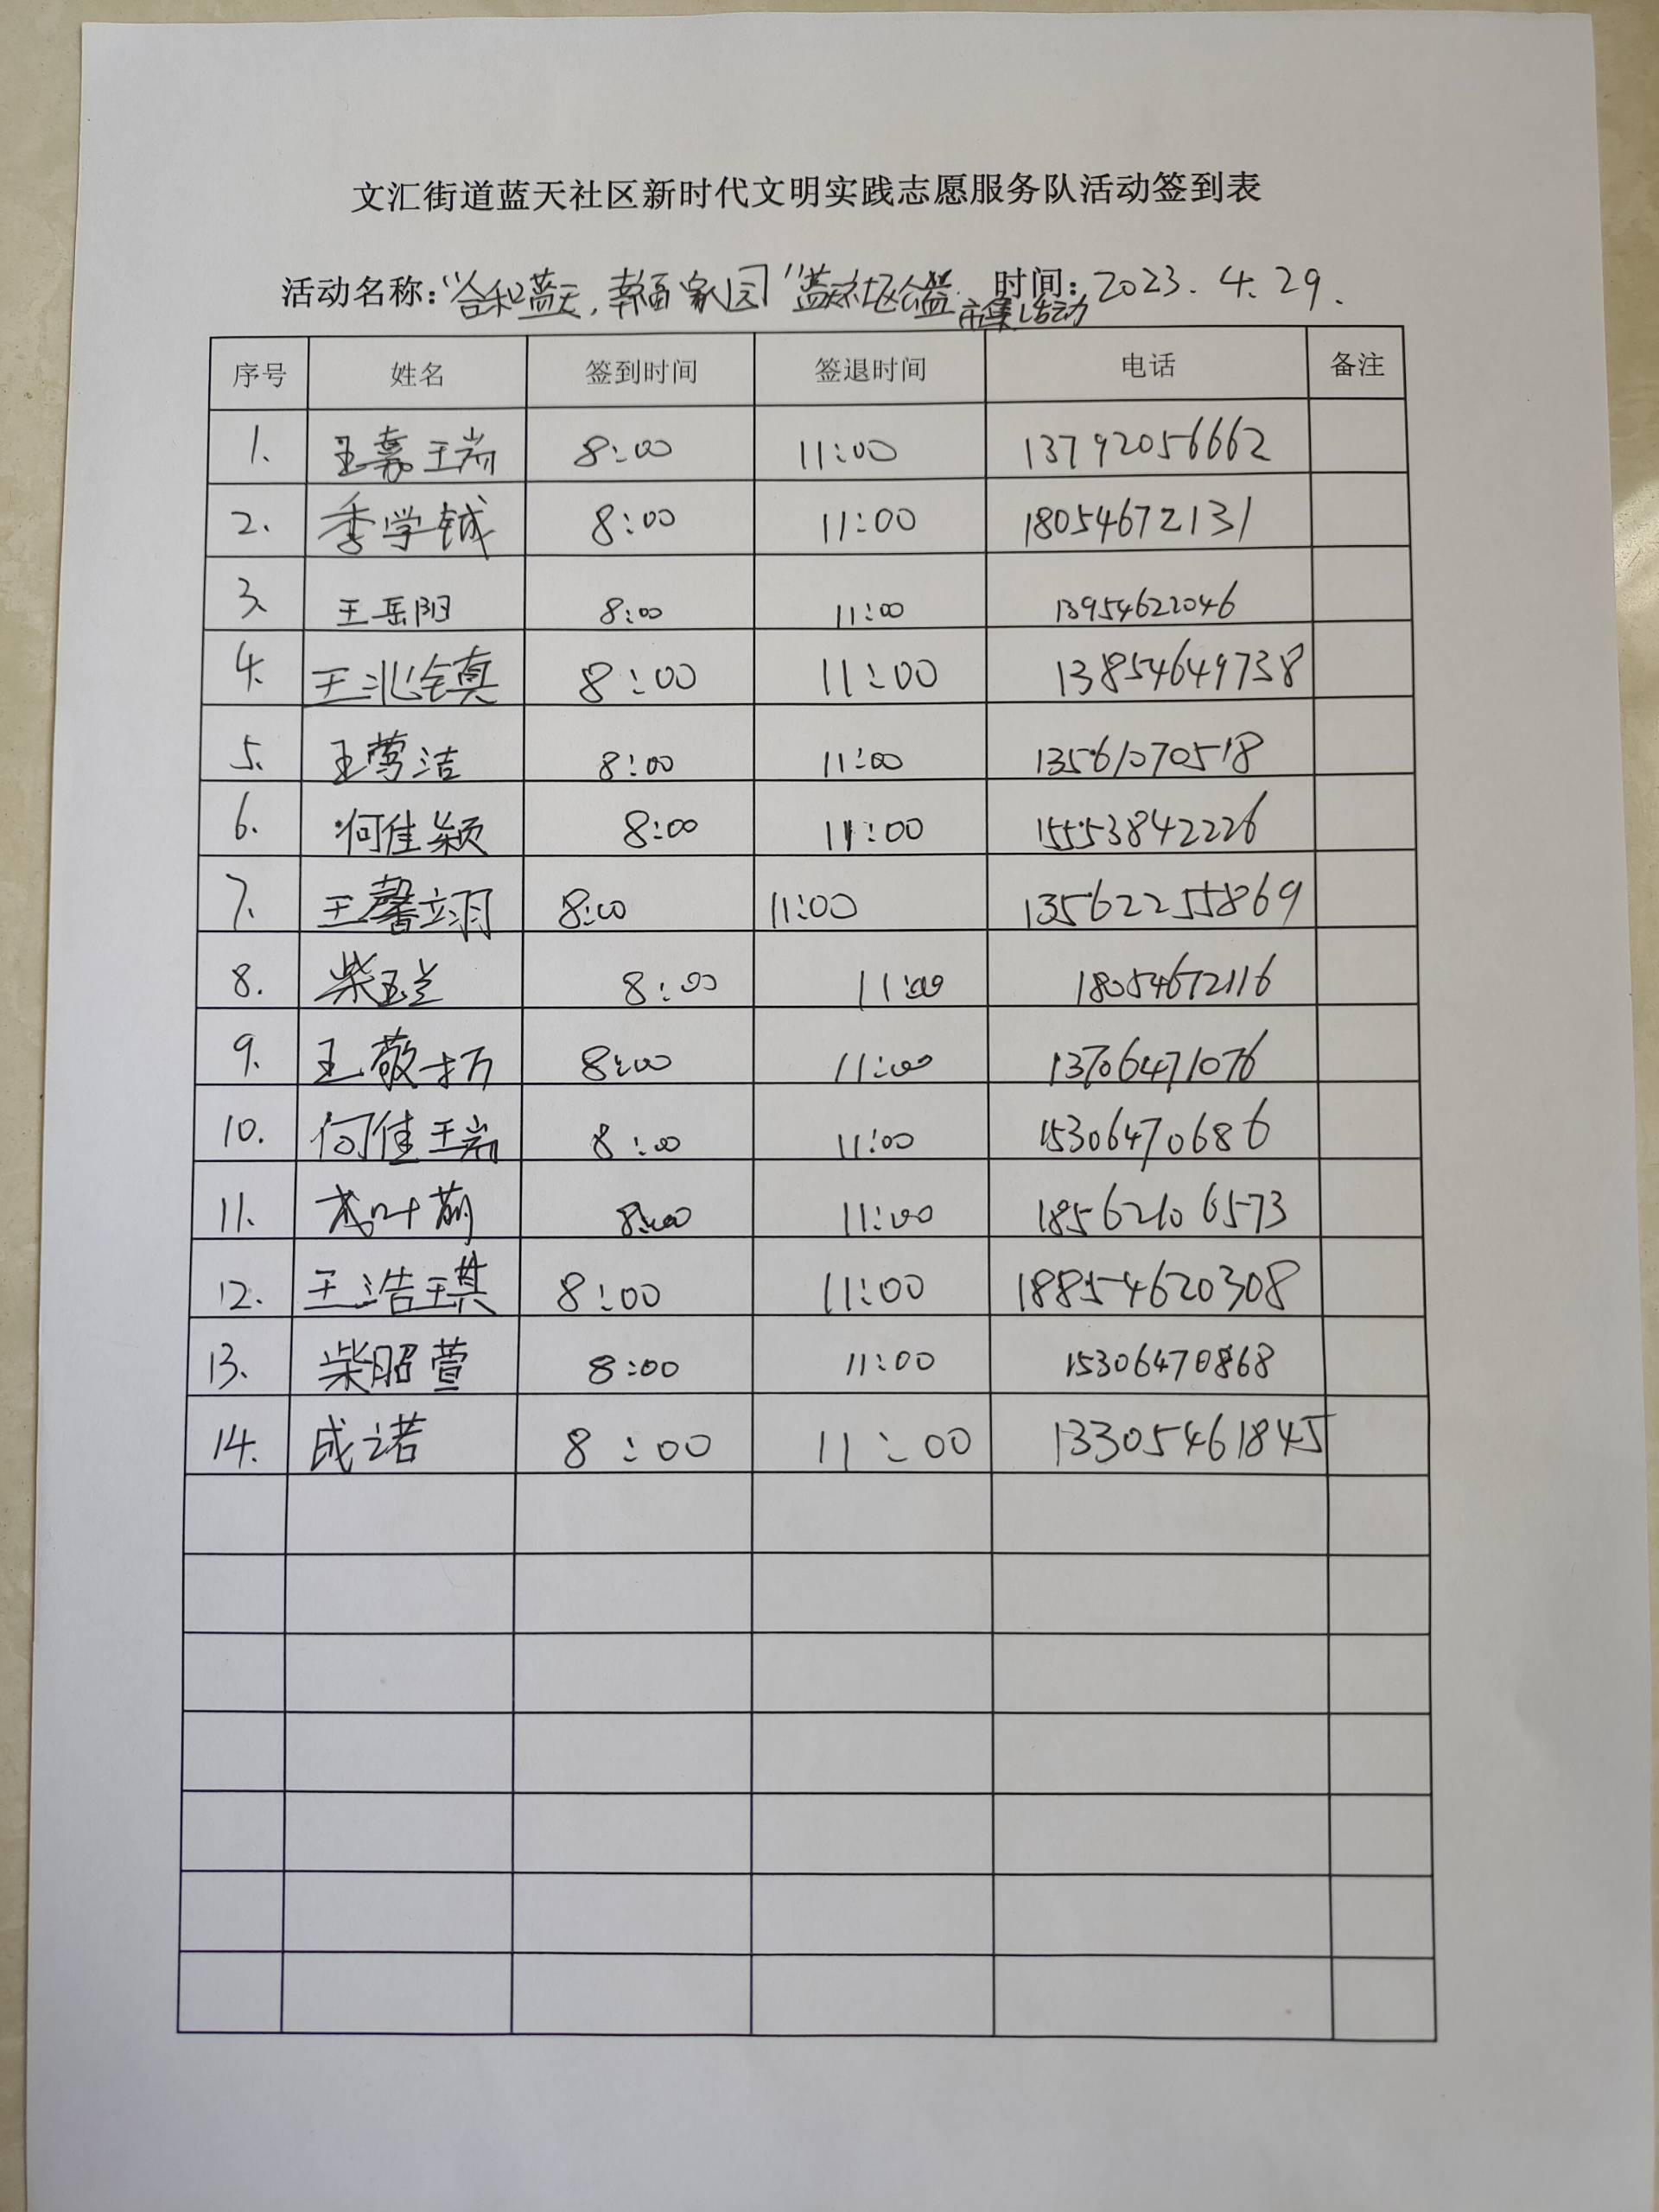 文汇街道蓝天社区新时代文明实践志愿服务队活动签到表
活动名称:“合和蓝天,幸福家园”蓝天社区公益市集活动 时间:2023.4.29.
序号 姓名 签到时间 签退时间 电话 备注
1. 王嘉瑞 8:00 11:00 13792056662
2. 季学铖 8:00 11:00 18054672131
3、 王岳阳 8:00 11:00 13954622046
4. 王兆镇 8:00 11:00 13854649738
5. 王莺洁 8:00 11:00 13561070518
6. 何佳颖 8:00 11:00 15553842226
7. 王馨翊 8:00 11:00 13562255869
8. 柴玉兰 8:00 11:00 18054672116
9. 王敬 8:00 11:00 13706471076
10. 何佳瑞 8:00 11:00 15306470686
11. 叶萌 8:00 11:00 18562106573
12. 王浩琪 8:00 11:00 18854620308
13. 柴昭萱 8:00 11:00 15306470868
14. 成诺 8:00 11:00 13305461845